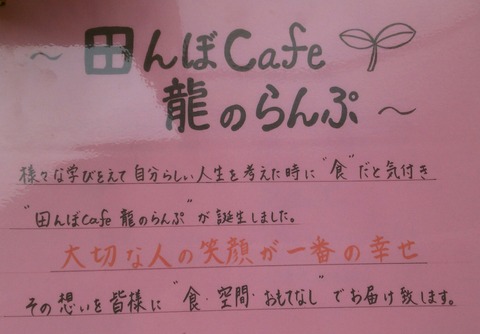 ～田んぼCafe
龍のらんぷ～
様々な学びをえて自分らしい人生を考えた時に"食"だと気付き
"田んぼcafe 龍のらんぷ"が誕生しました。
大切な人の笑顔が一番の幸せ
その想いを皆様に"食・空間・おもてなし"でお届け致します。